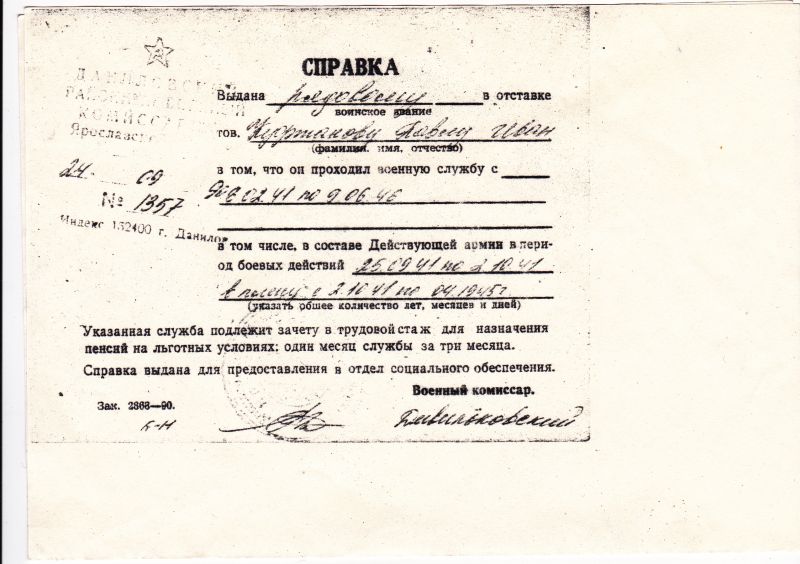 СПРАВКА
ДАНИЛОВСКИЙ
РАЙОННЫЙ ВОЕННЫЙ
КОМИССАРИАТ
24. 09
№ 1357
Индекс 152400 г. Данилов
Выдана рядовому в отставке
воинское звание
тов. Павлу Иван
(фамилия, имя, отчество)
в том, что он проходил военную службу с
02.41 по 9.06.46
в том числе, в составе Действующей армии в пери-
од боевых действий 25.09.41 по 2.10.41
в плену с 2.10.41 по 04.1945г
(указать общее количество лет, месяцев и дней)
Указанная служба подлежит зачету в трудовой стаж для назначения
пенсий на льготных условиях: один месяц службы за три месяца.
Справка выдана для предоставления в отдел социального обеспечения.
Военный комиссар.
Зак. 2868—90.